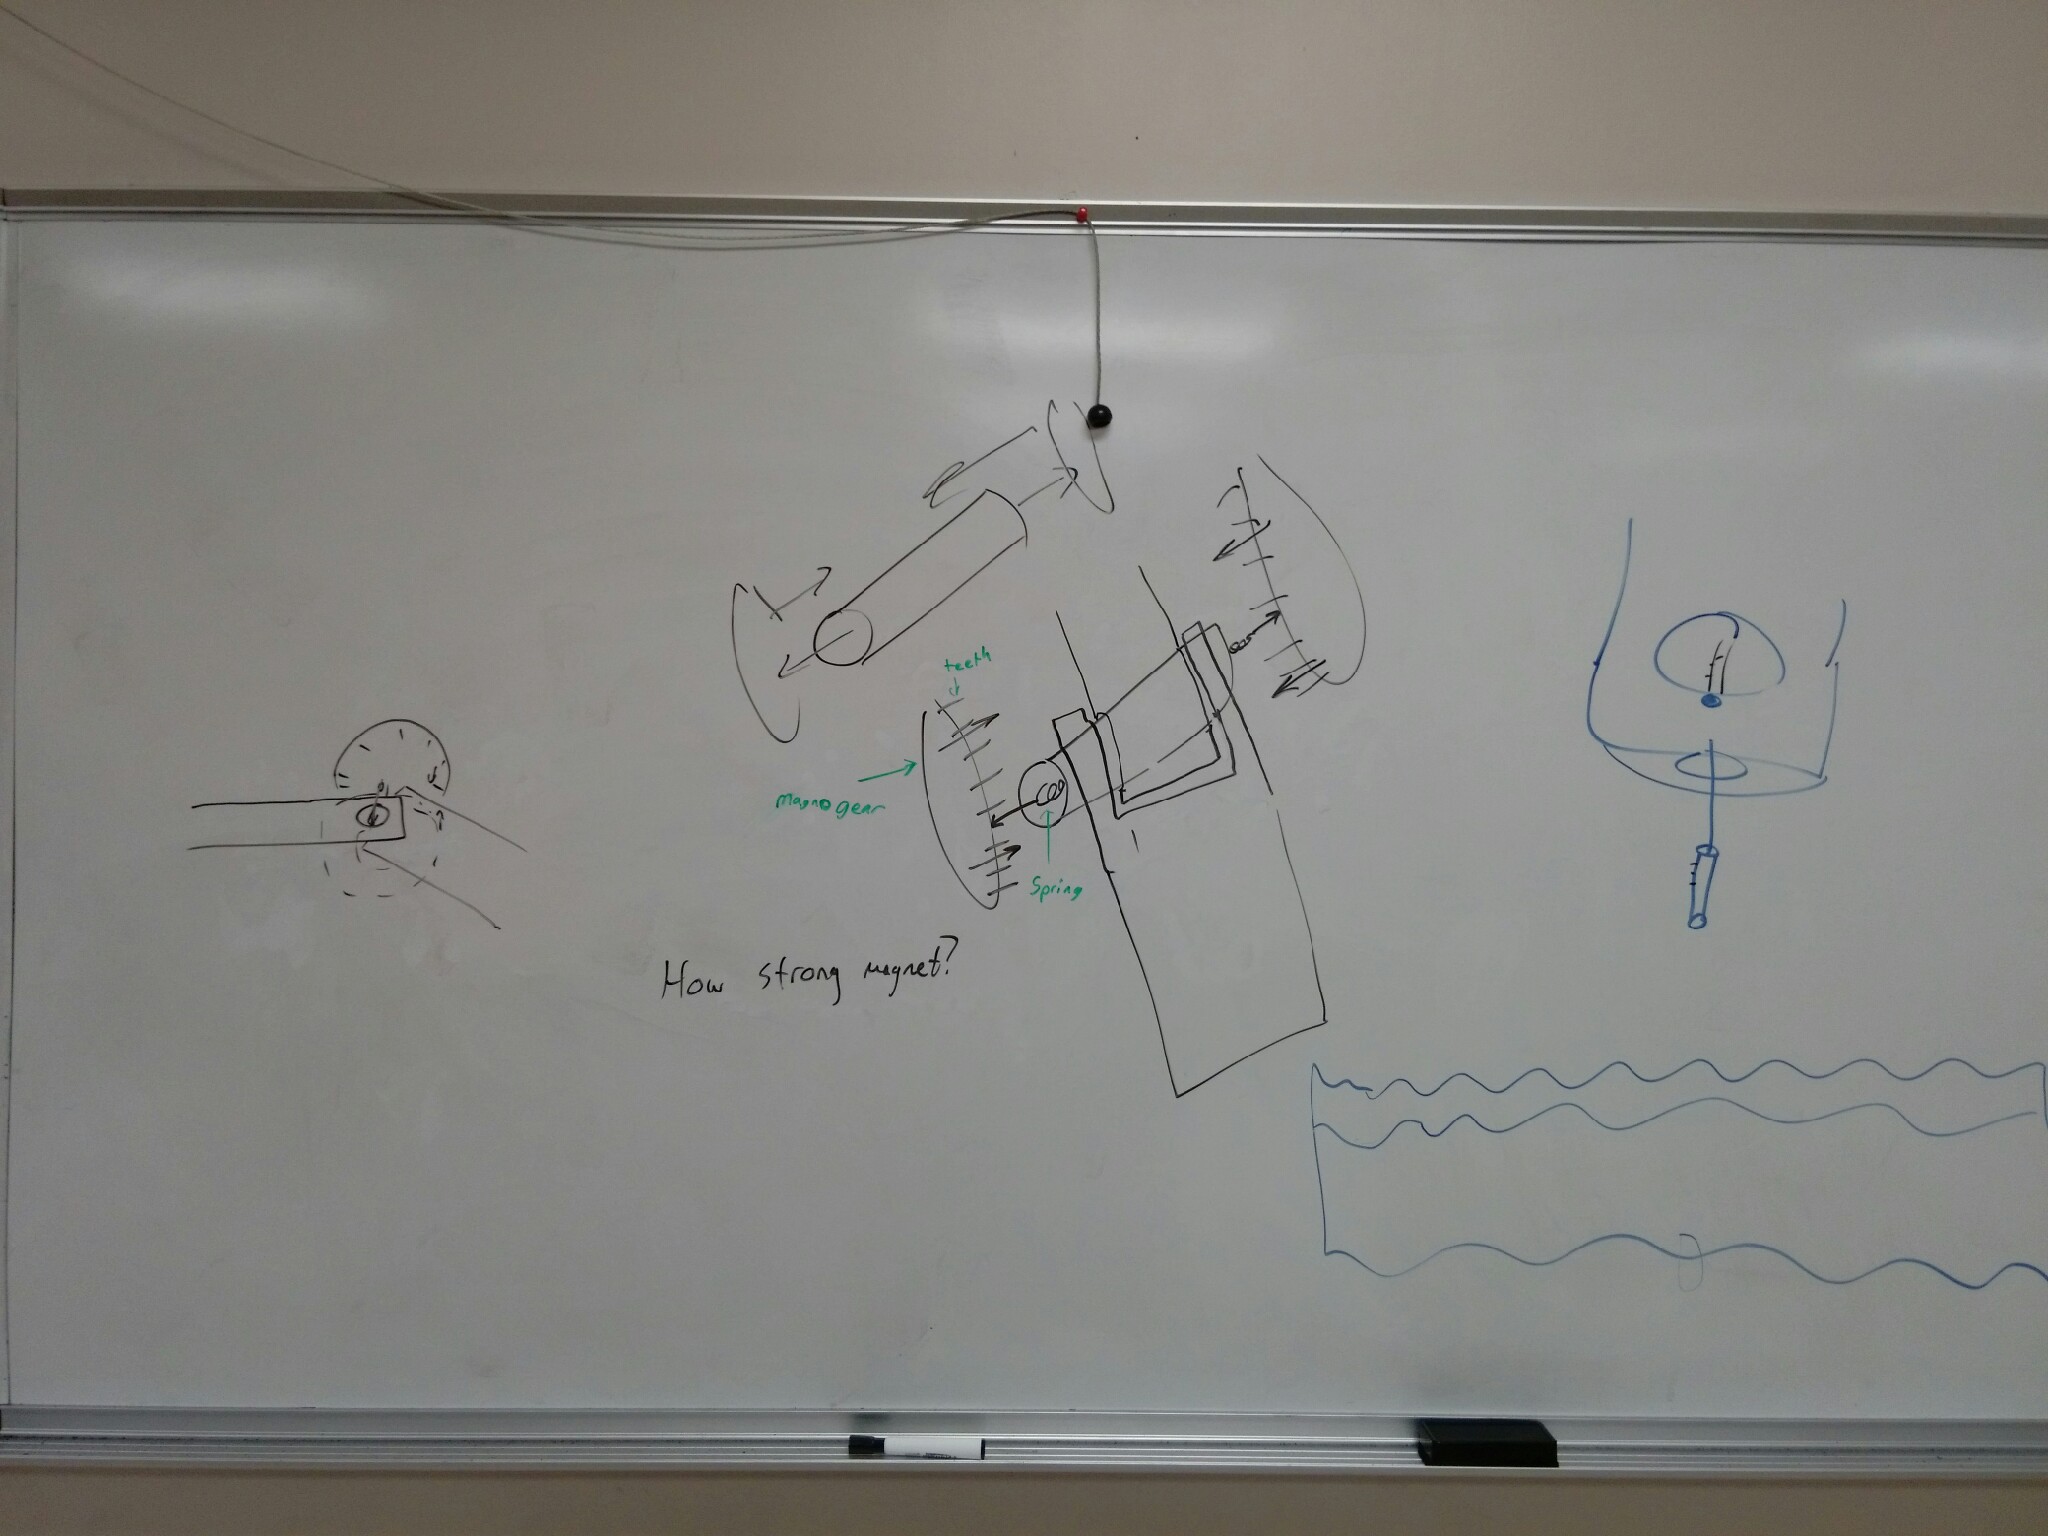 teeth
magno gear
Spring
How strong magnet?